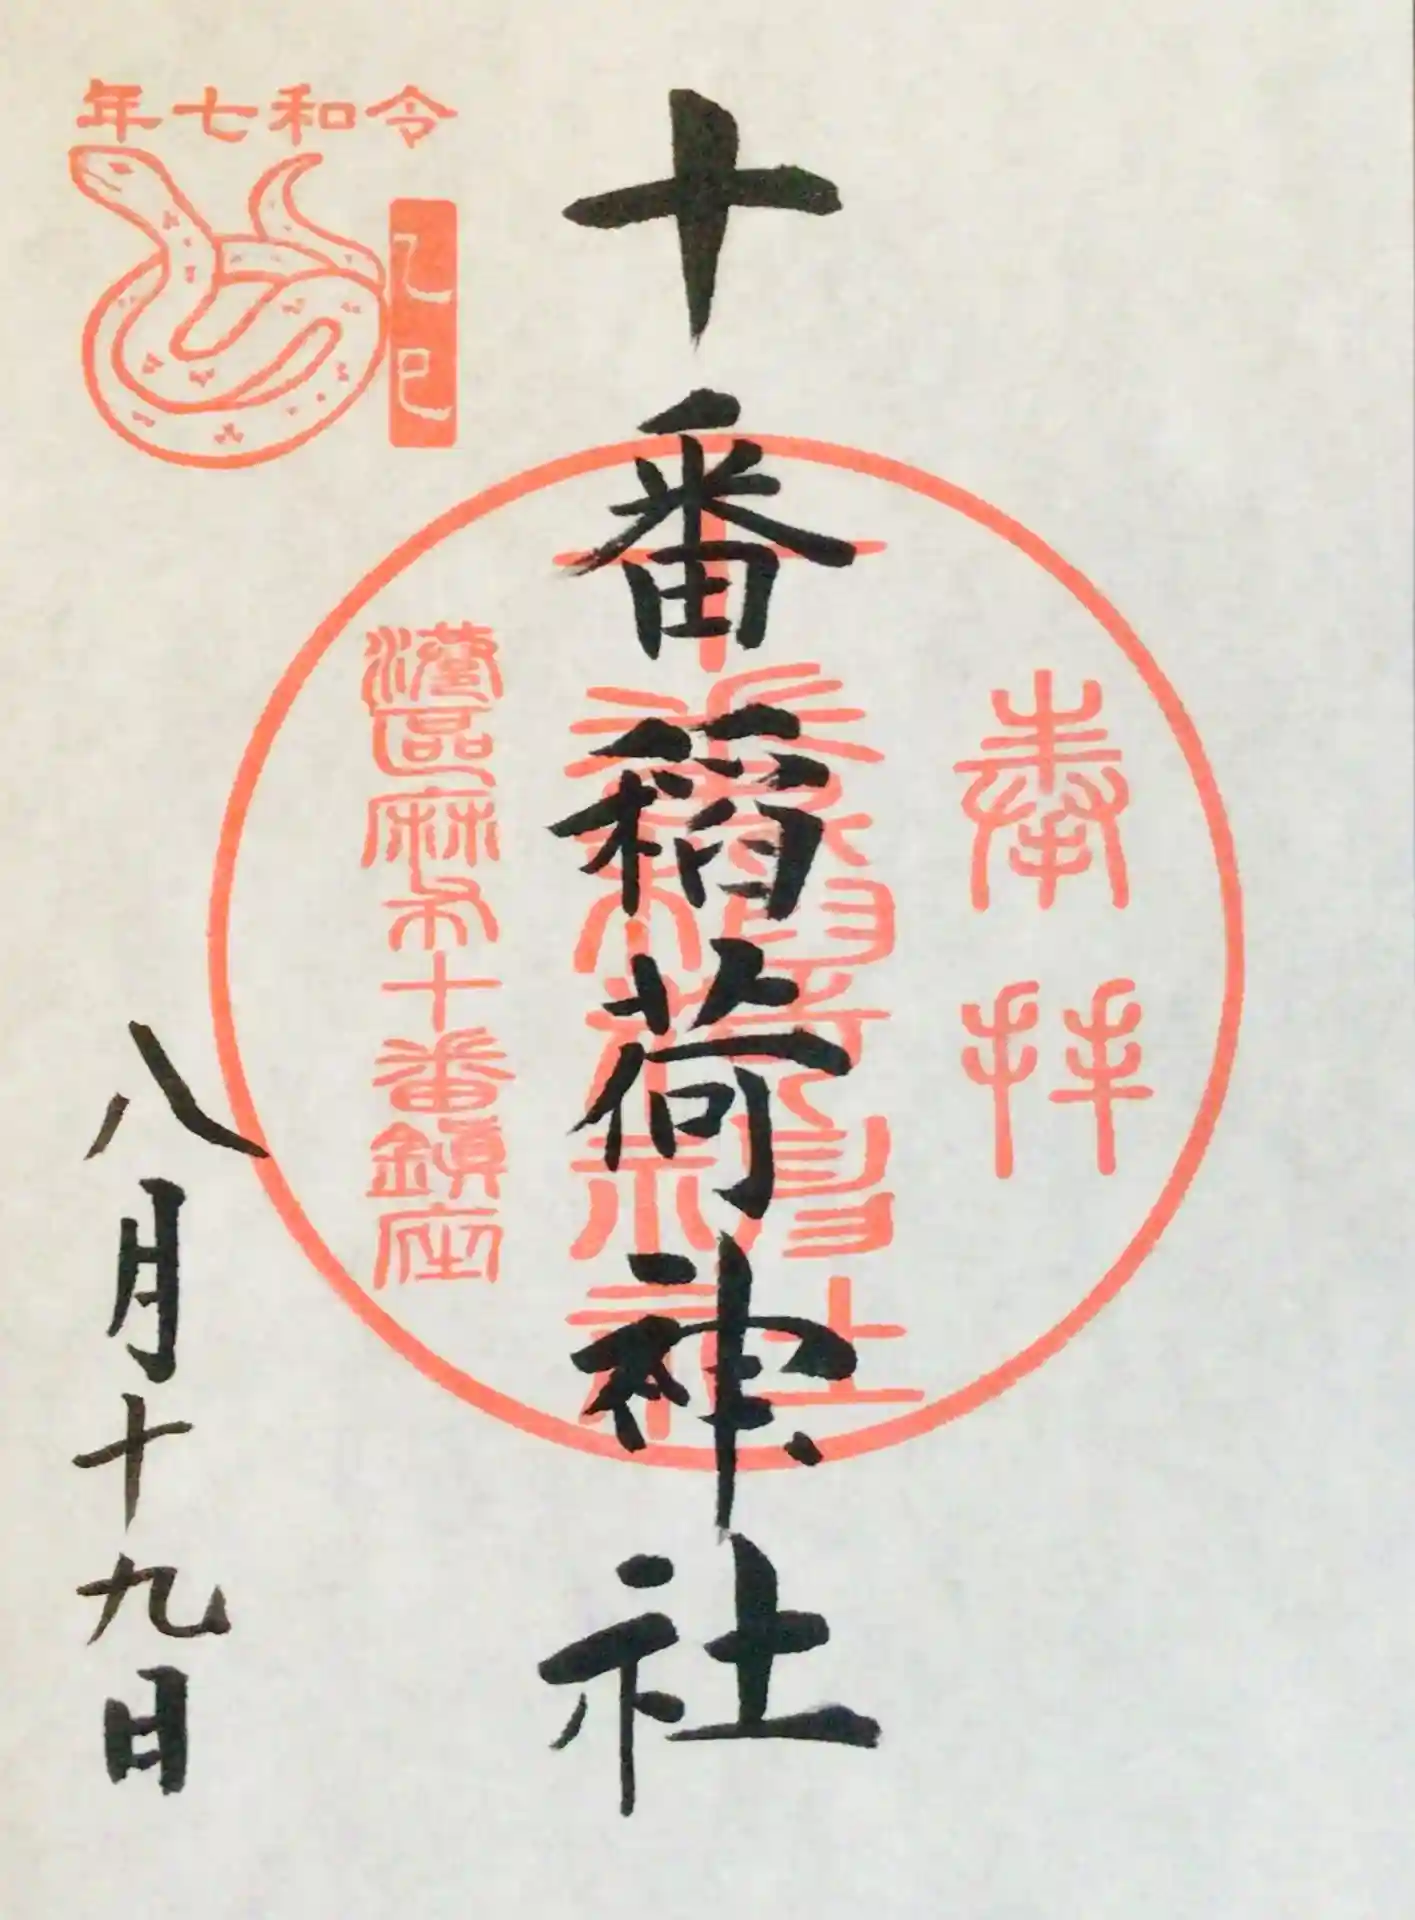 奉拝
十番稲荷神社
十番稲荷神社
港區麻布十番鎮座
令和七年
乙巳
八月十九日